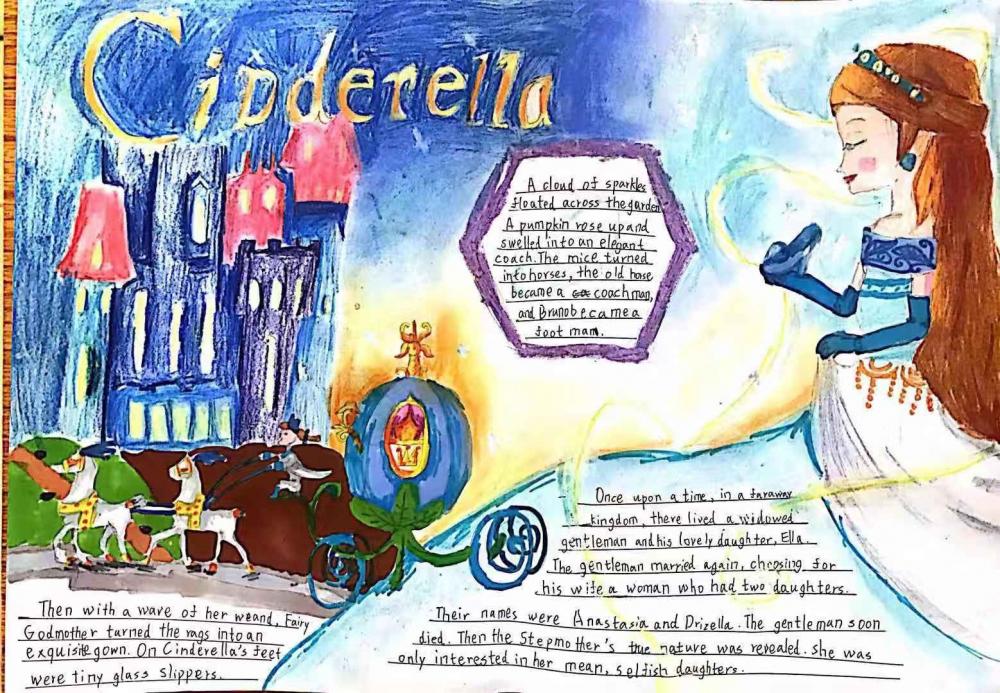 Cinderella
A cloud of sparkles
floated across the garden
A pumpkin rose up and
swelled into an elegant
coach. The mice turned
into horses, the old horse
became a coachman,
and Bruno became a
foot man.
Once upon a time, in a faraway
kingdom, there lived a widowed
gentleman and his lovely daughter, Ella.
The gentleman married again, choosing for
his wife a woman who had two daughters.
Their names were Anastasia and Drizella. The gentleman soon
died. Then the Stepmother's true nature was revealed. she was
only interested in her mean, selfish daughters.
Then with a wave of her weand, Fairy
Godmother turned the rags into an
exquisite gown. On Cinderella's feet
were tiny glass slippers.